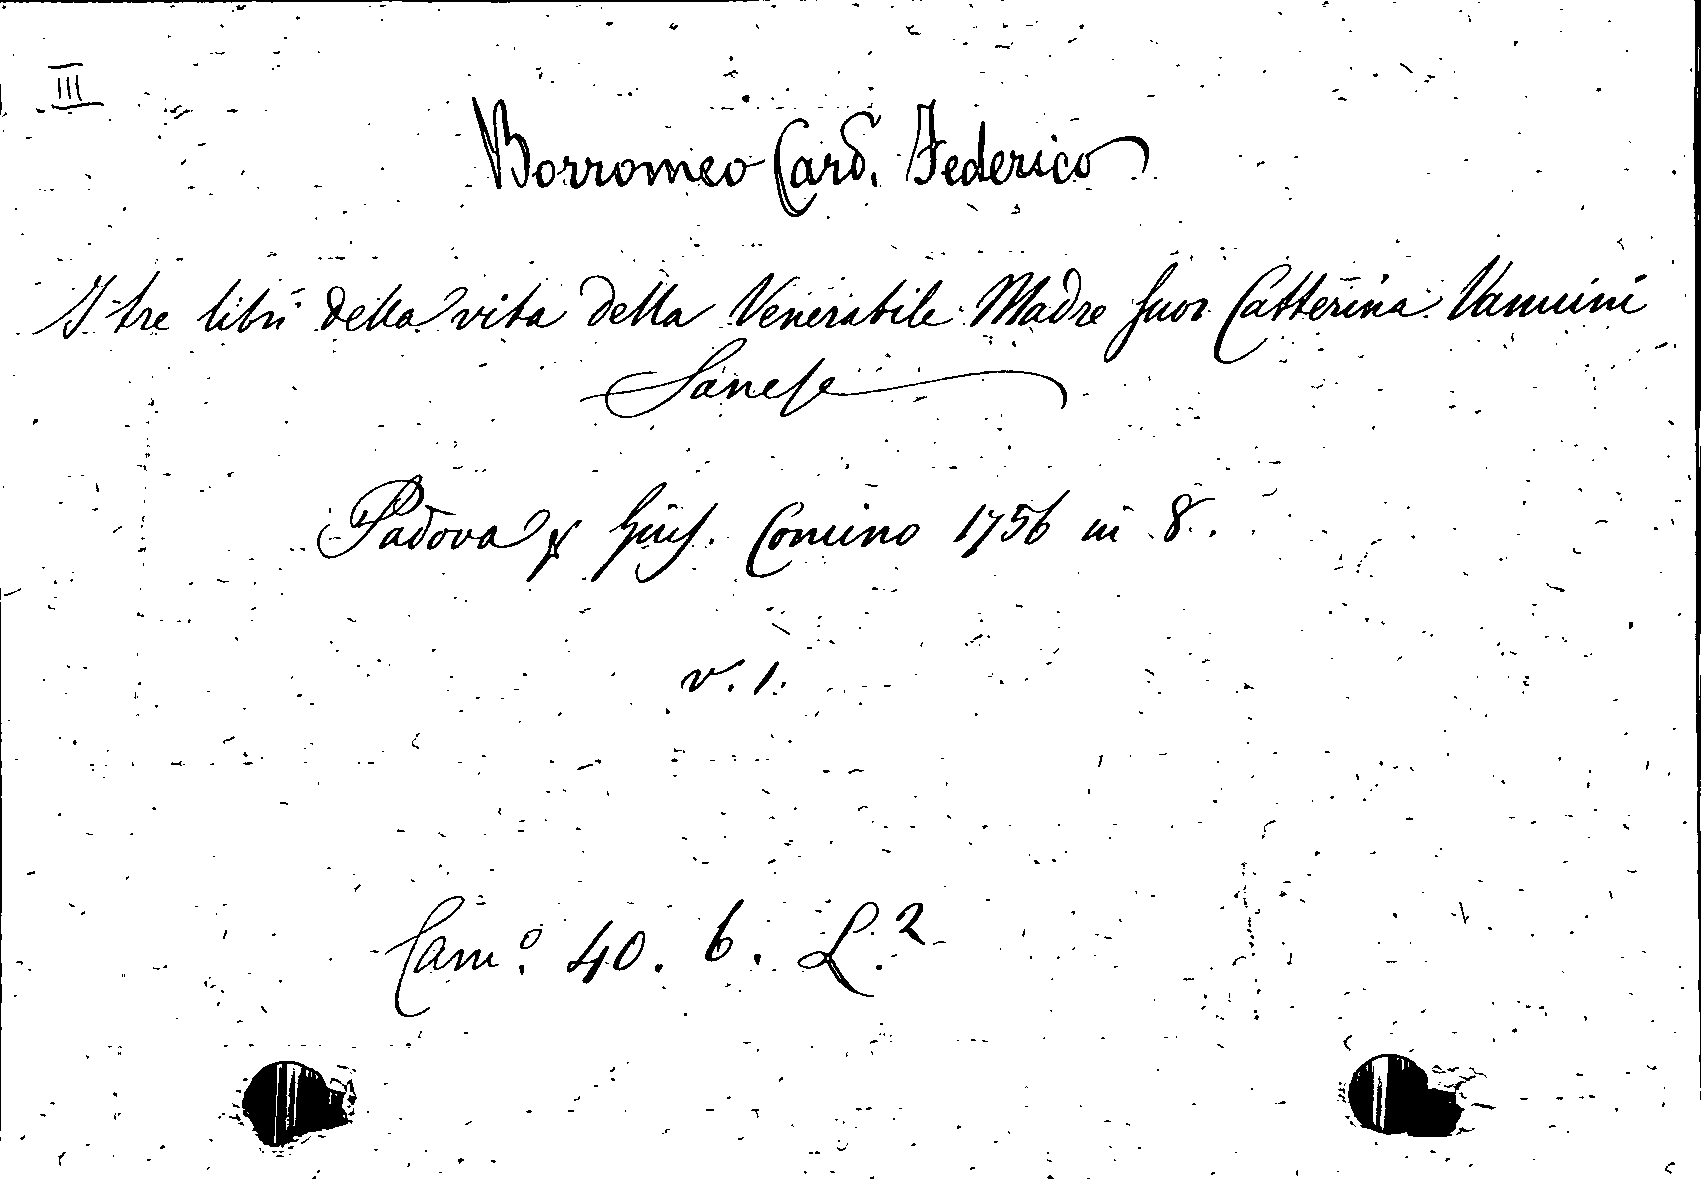 III
Borromeo Card. Federico
I tre libri della vita della Venerabile Madre Suor Catterina Vannini
Sanese
Padova p Gius. Comino 1756 in 8.
v. 1.
Cam.º 40. b. L.2